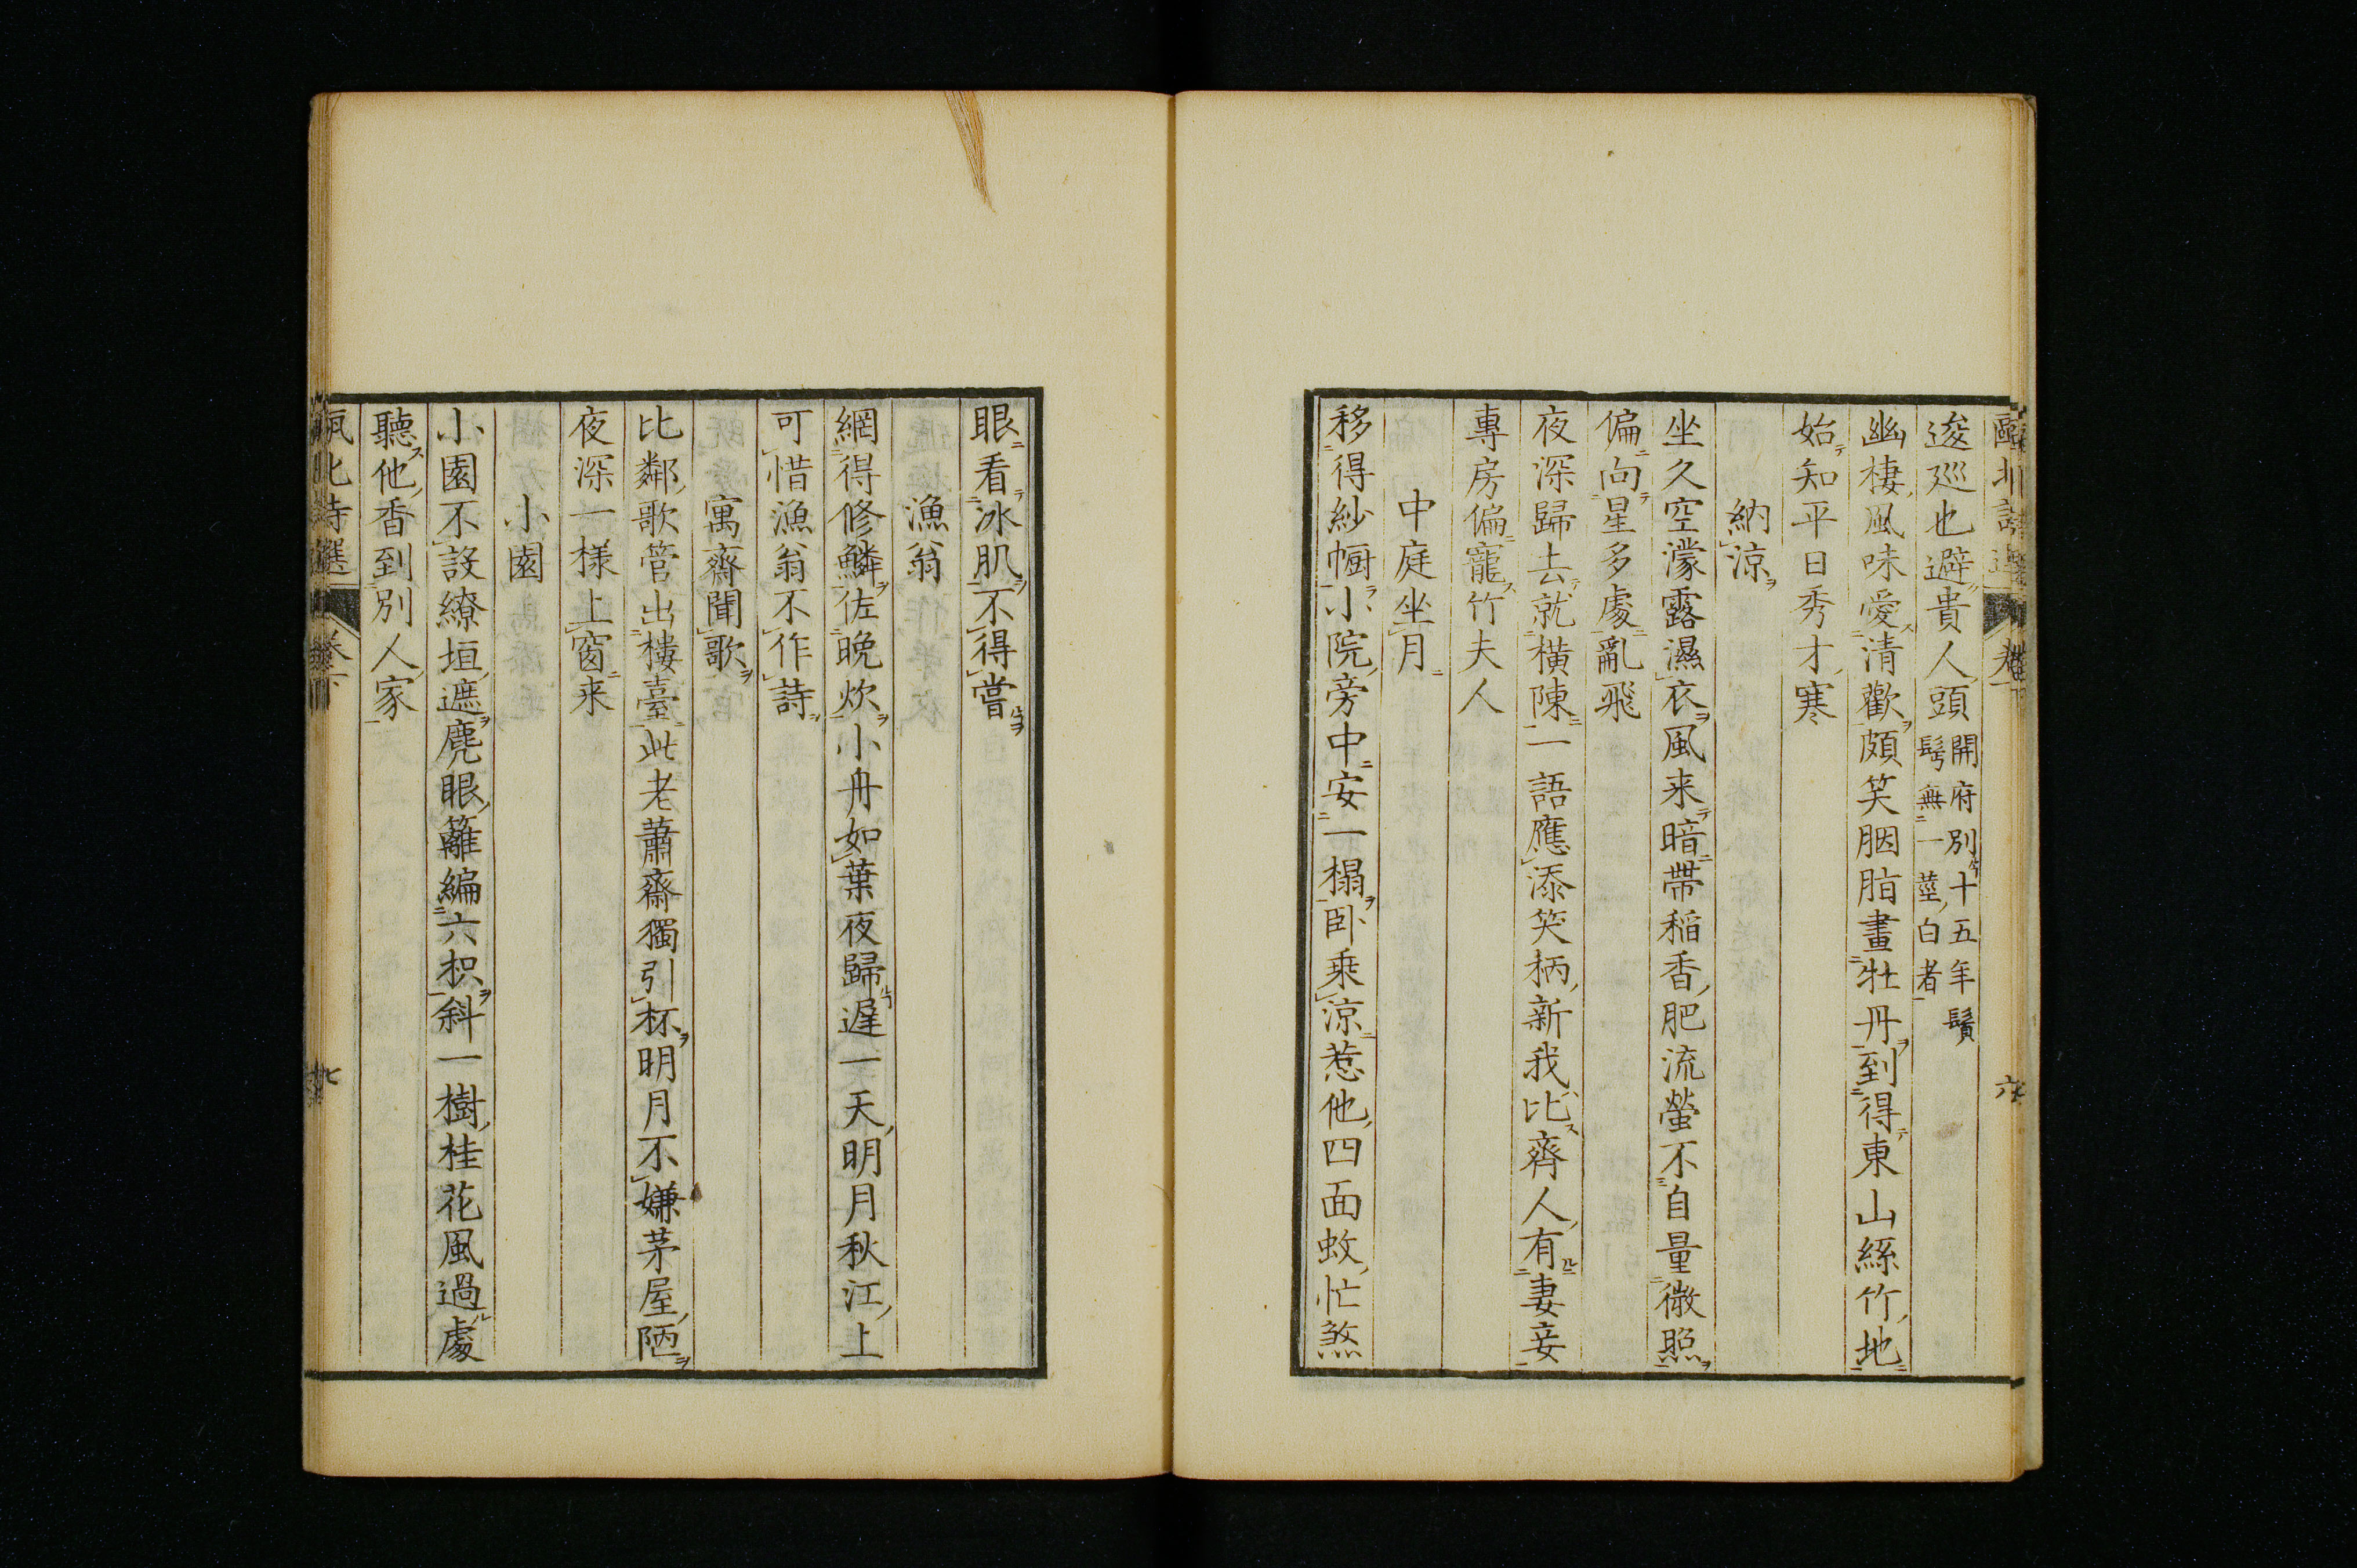 甌北詩選 卷下 六
逡巡也避貴人頭 開府別十五年鬢
髩無一莖白者
幽棲風味愛清歡頗笑胭脂畫牡丹到得東山絲竹地
始知平日秀才寒
納涼
坐久空濛露濕衣風来暗帶稲香肥流螢不自量微照
偏向星多處亂飛
夜深歸去就橫陳一語應添笑柄新我比齊人有妻妾
專房偏寵竹夫人
中庭坐月
移得紗幮小院旁中安一榻臥乗涼惹他四面蚊忙煞
眼看冰肌不得嘗
漁翁
網得修鱗佐晩炊小舟如葉夜歸遲一天明月秋江上
可惜漁翁不作詩
寓齋聞歌
比鄰歌管出樓臺此老蕭齋獨引杯明月不嫌茅屋陋
夜深一様上窗来
小園
小園不設繚垣遮麂眼籬編六枳斜一樹桂花風過處
聽他香到別人家
甌北詩選 卷下 七